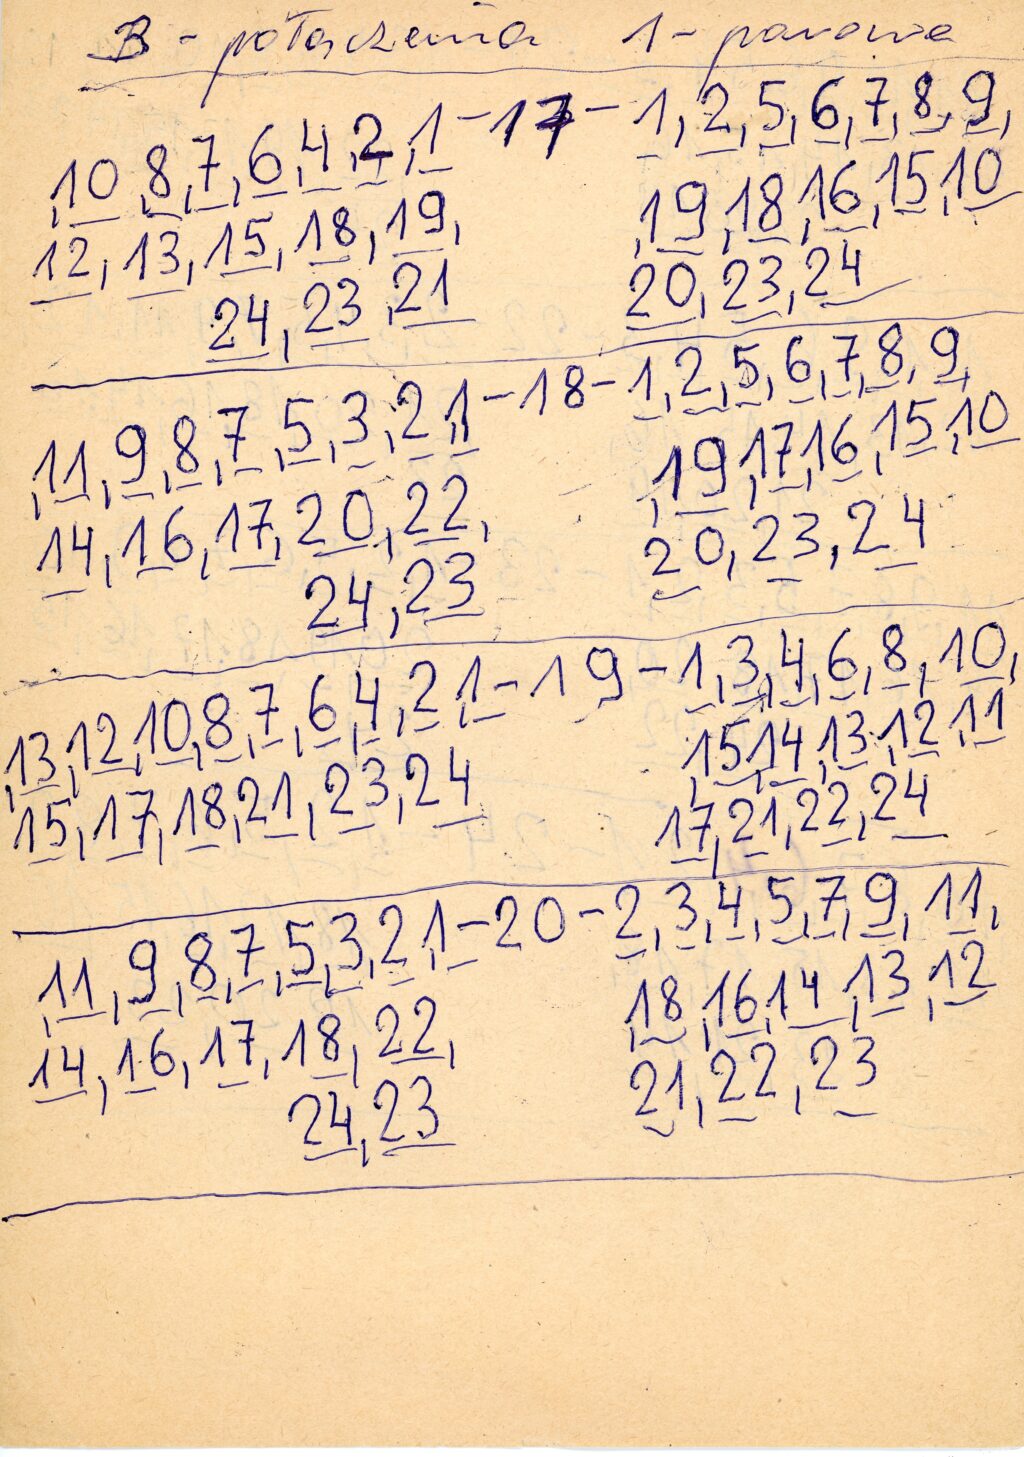 B - połączenia 1 - parowe
,10,8,7,6,4,2,1-17-1,2,5,6,7,8,9,
12,13,15,18,19, ,19,18,16,15,10
24,23,21 20,23,24
,11,9,8,7,5,3,2,1-18-1,2,5,6,7,8,9,
14,16,17,20,22, ,19,17,16,15,10
24,23 20,23,24
,13,12,10,8,7,6,4,2,1-19-1,3,4,6,8,10,
15,17,18,21,23,24 ,15,14,13,12,11
17,21,22,24
,11,9,8,7,5,3,2,1-20-2,3,4,5,7,9,11,
14,16,17,18,22, ,18,16,14,13,12
24,23 21,22,23